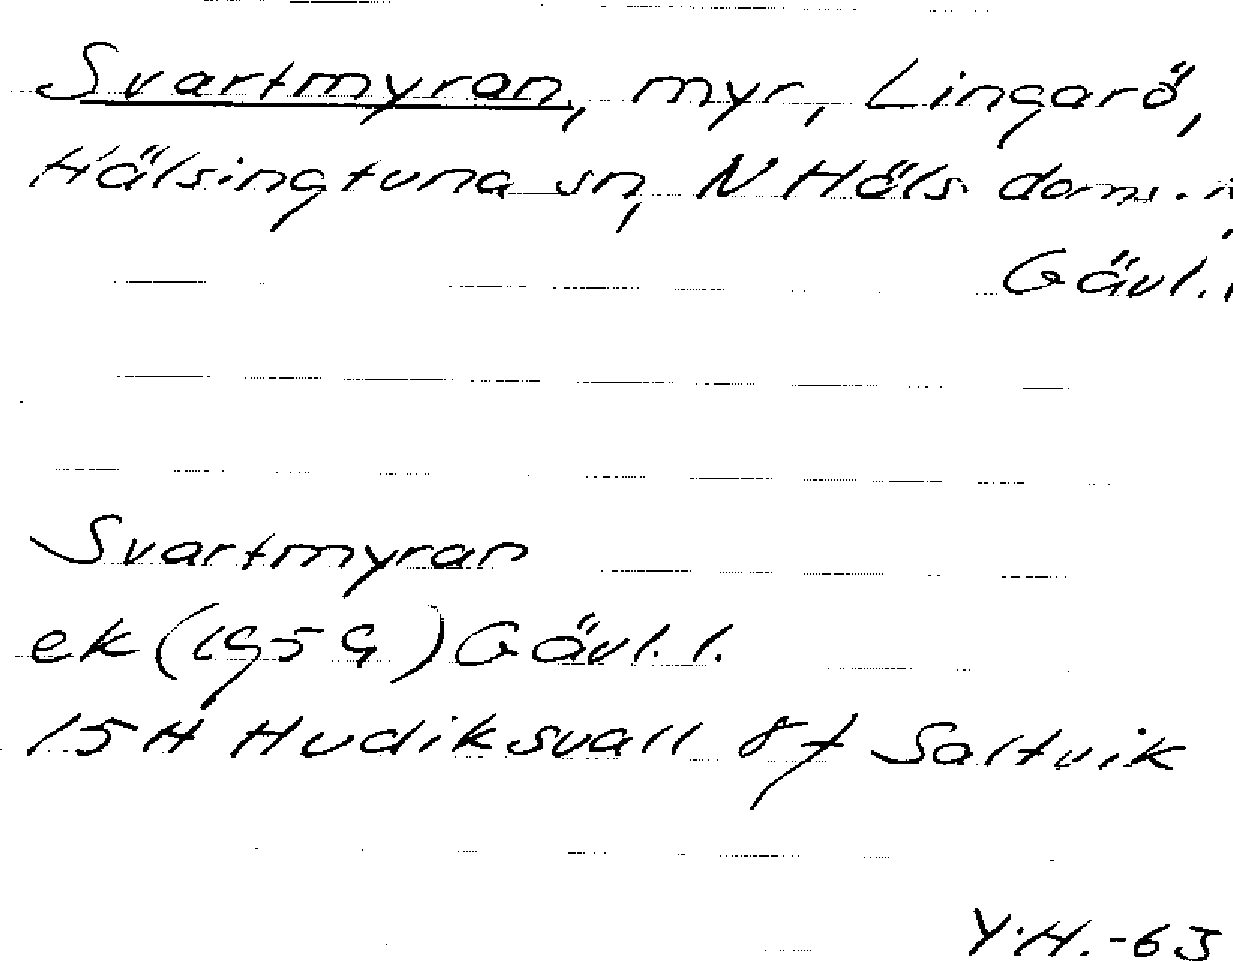 Svartmyran, myr, Lingarö,
Hälsingtuna sn, N Häls. doms.
Gävl.
Svartmyran
ek (1959) Gävl. l.
15H Hudiksvall 8f Saltvik
Y.H.-63